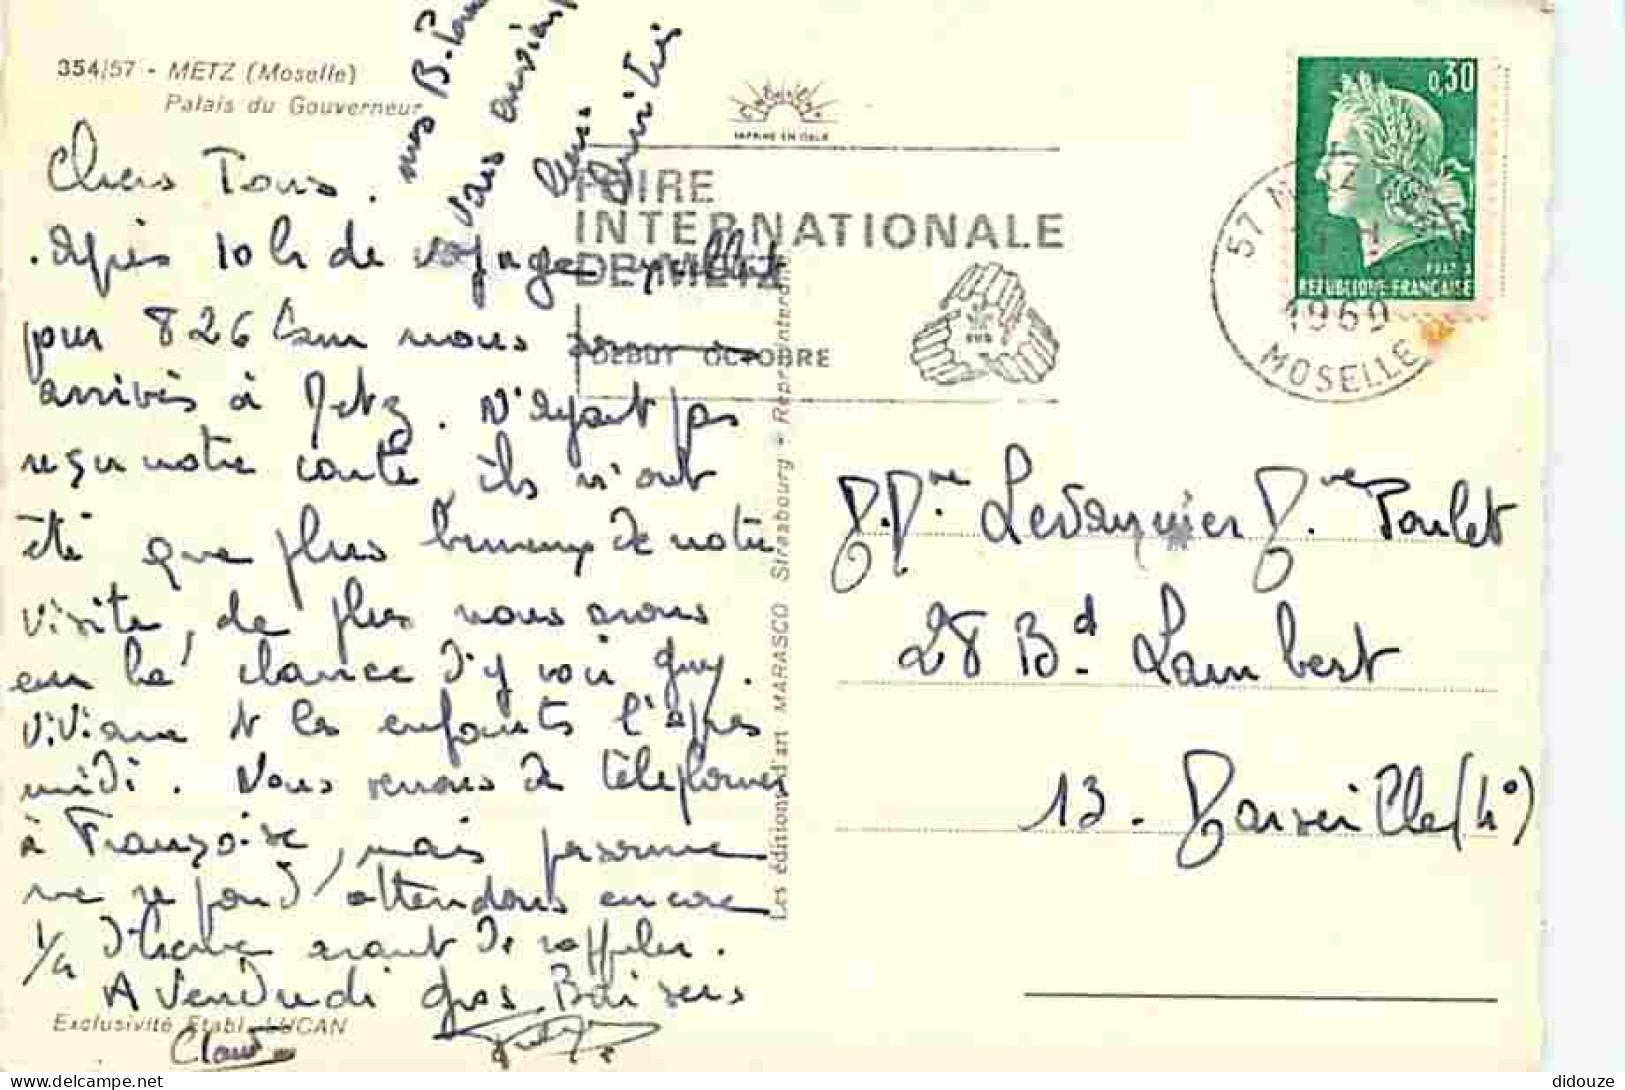 354/57 - METZ (Moselle)
Palais du Gouverneur
IMPRIMÉ EN ITALIE
FOIRE
INTERNATIONALE
DE METZ
DEBUT OCTOBRE
0,30
POSTES
REPUBLIQUE FRANÇAISE
57 METZ
1969
MOSELLE
Chers Tous.
Après 10 h de voyage
pour 826 km nous
arrivés à Metz. N'ayant pas
reçu notre carte, ils n'ont
été que plus heureux de notre
visite, de plus nous avons
eu la chance d'y voir Guy.
Viviane et les enfants l'après
midi. Nous venons de téléfoner
à Françoise, mais personne
ne répond, attendons encore
1/4 d'heure avant de rappeler.
A Vendredi gros Baisers
Claude
nous
vous
amitiés
Les éditions d'art MARASCO Strasbourg - Repr. interdite
Exclusivité Etabl. LUCAN
M. Mme Levannier Mme Poulet
28 Bd. Lambert
13 - Marseille (4º)
delcampe.net
didouze